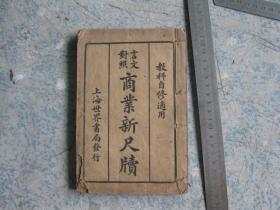 教科自修適用
言文對照
商業新尺牘
上海世界書局發行